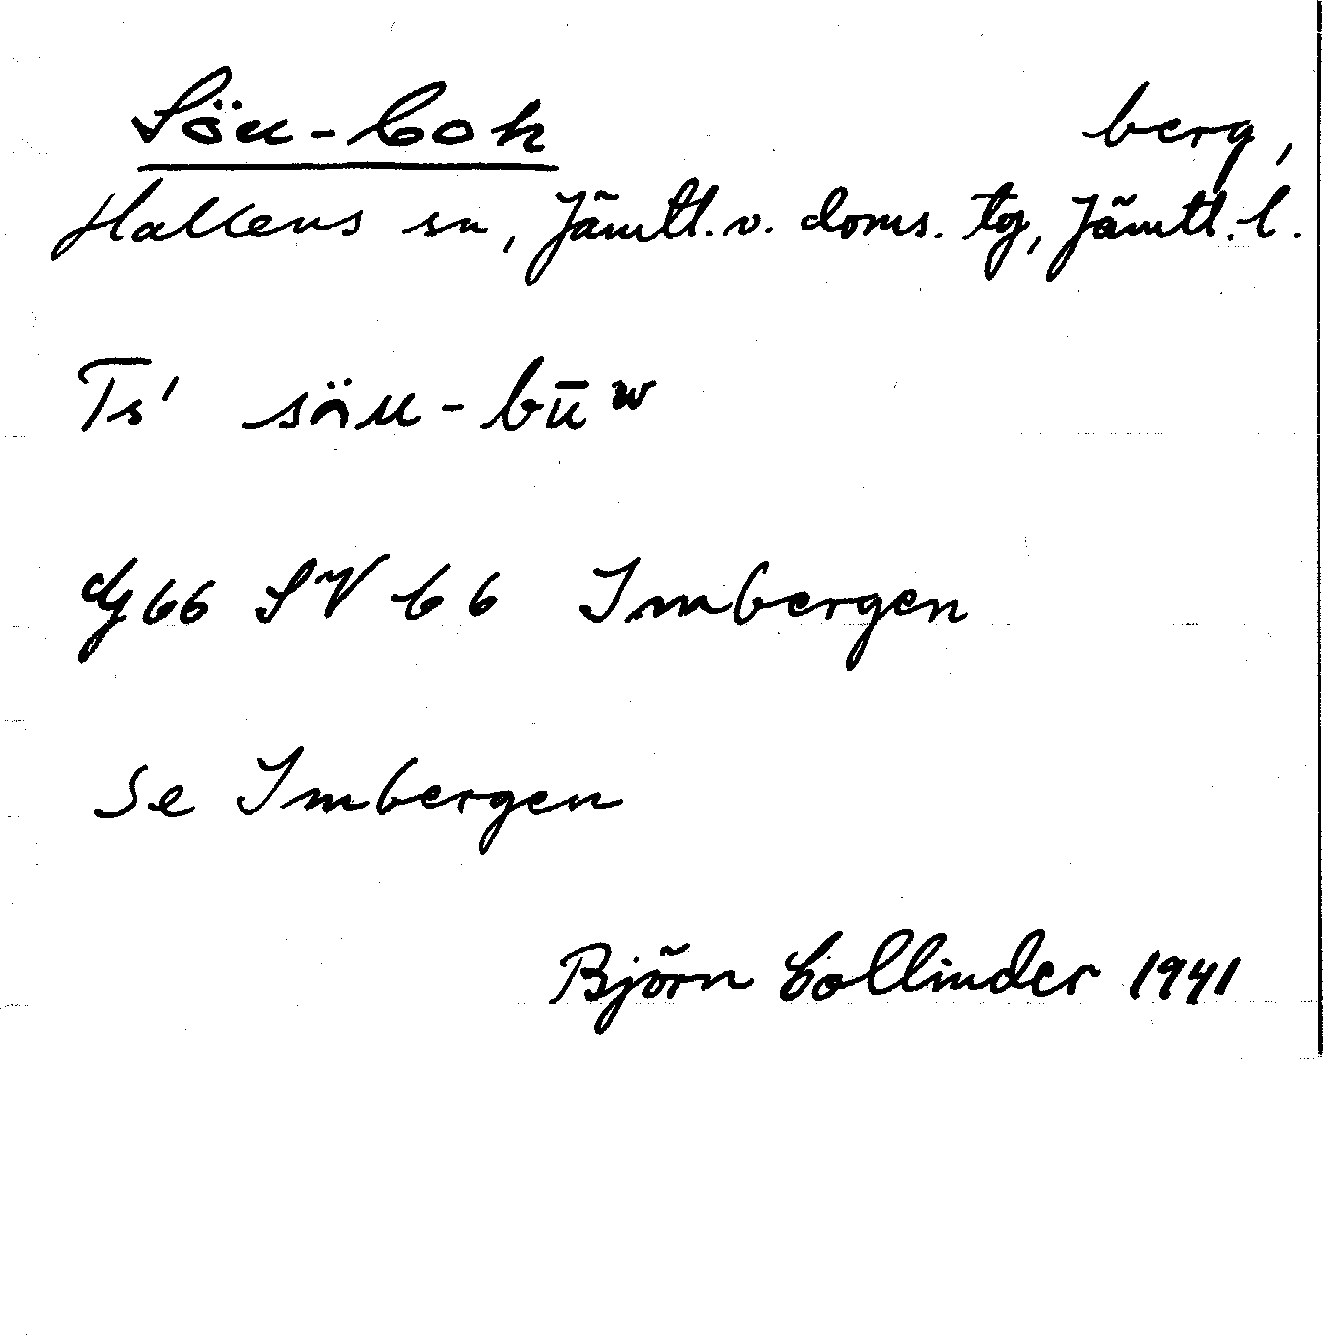 Söu-boh berg,
Hallens sn, Jämtl. v. doms. tg, Jämtl. l.
Ts' söu-būʷ
Gg 66 SV b 6 Imbergen
Se Imbergen
Björn Collinder 1941